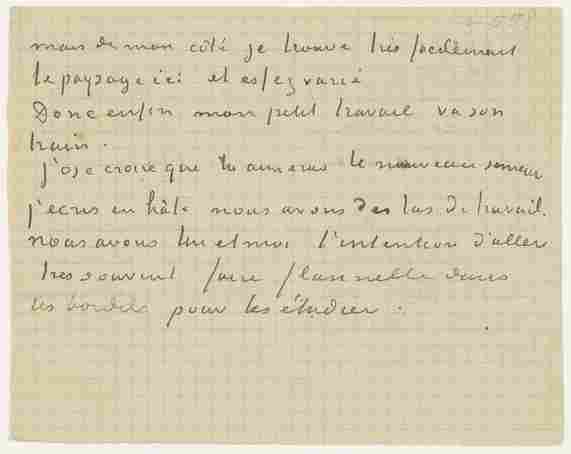 mais de mon côté je trouve très facilement
le paysage ici et assez varié
Donc enfin mon petit travail va son
train.
j'ose croire que tu aimeras le nouveau semeur
j'ecris en hâte nous avons des tas de travail.
nous avons lui et moi l'intention d'aller
très souvent faire flannelle dans
les bordels pour les étudier.